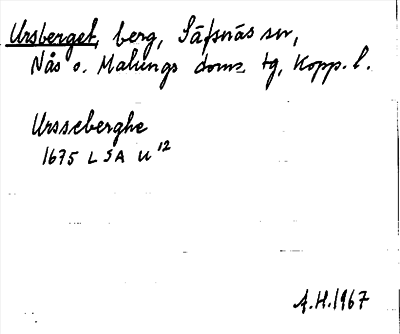 Ursberget, berg, Säfsnäs sn,
Nås o. Malungs doms. tg, Kopp. l.
Ursseberghe
1675 LSA U¹²
A.H. 1967